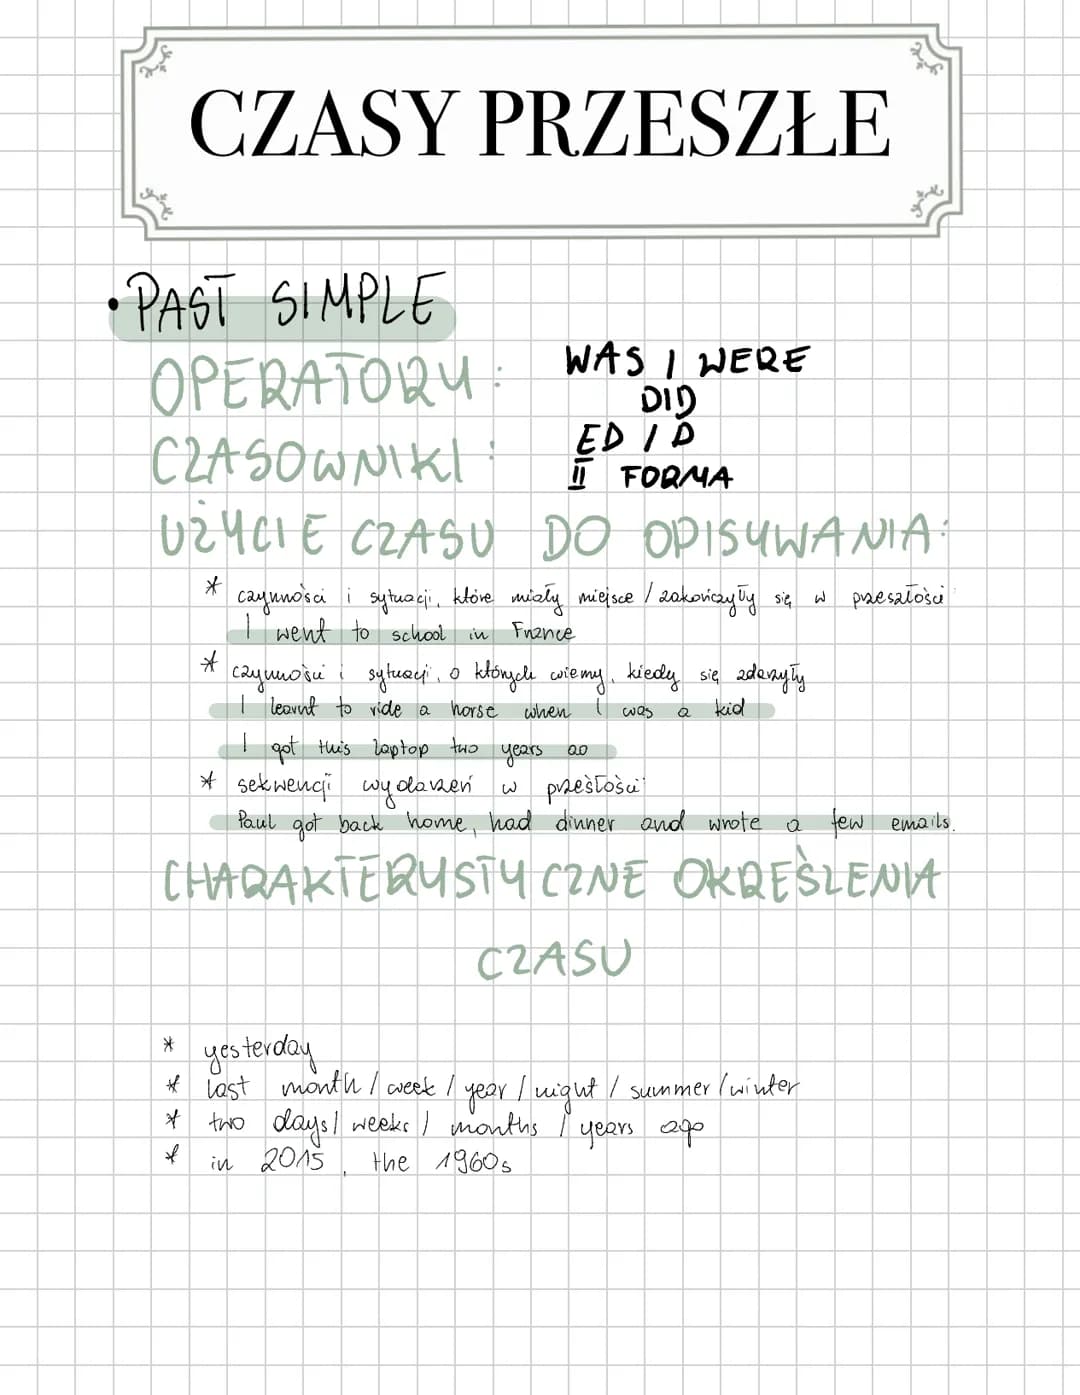 CZASY PRZESZŁE
• PAST SIMPLE
OPERATORY: WAS / WERE
DID
CZASOWNIKI: ED / D
II FORMA
UŻYCIE CZASU DO OPISYWANIA:
* czynności i sytuacji, które miały miejsce / zakończyły się w przeszłości
I went to school in France
* czynności i sytuacji, o których wiemy, kiedy się zdarzyły
I learnt to ride a horse when I was a kid
I got this laptop two years ao
* sekwencji wydarzeń w prześłości
Paul got back home, had dinner and wrote a few emails.
CHARAKTERYSTYCZNE OKREŚLENIA
CZASU
* yesterday
* last month / week / year / night / summer / winter
* two days / weeks / months / years ago
* in 2015, the 1960s